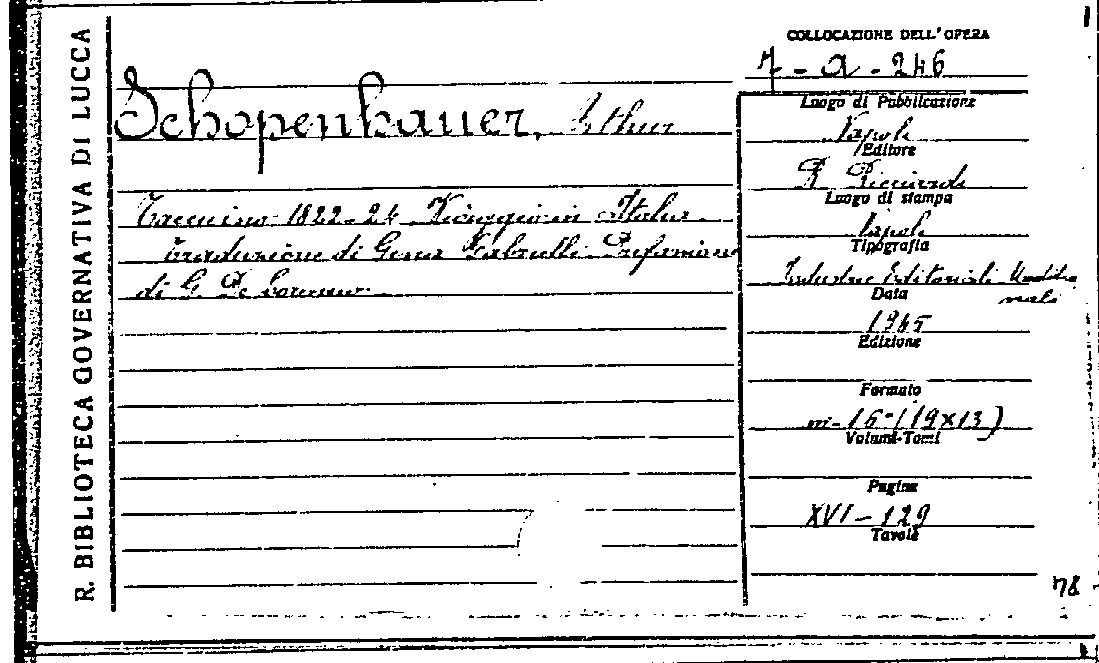 R. BIBLIOTECA GOVERNATIVA DI LUCCA
Schopenhauer, Arthur
Taccuino 1822-24 Viaggio in Italia
Traduzione di Gena Gabrielli Prefazione
di G. De
COLLOCAZIONE DELL' OPERA
7 - a - 246
Luogo di Pubblicazione
Napoli
Editore
R. Ricciardi
Luogo di stampa
Napoli
Tipografia
Industrie Editoriali Meridio
nali
Data
1945
Edizione
Formato
in-16° (19x13)
Volumi-Tomi
Pagine
XVI - 129
Tavole
78